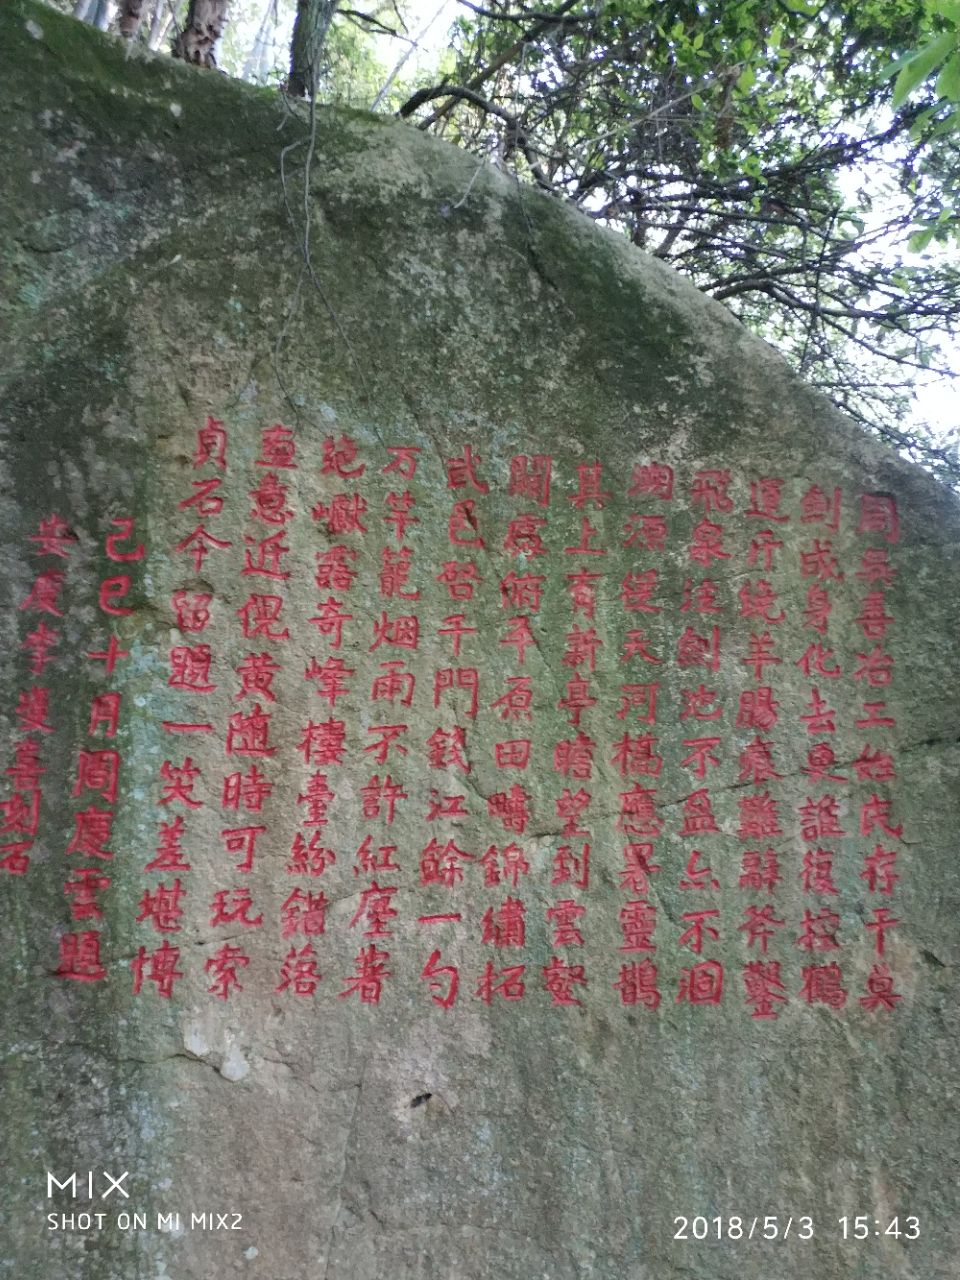 周吳善冶工始民存干莫
劍成身化去更誰復控鶴
道斤繞羊腸
難辭斧鑿
飛泉注劍池不盈亦不涸
淵源從天河橋應畧靈鵲
其上有新亭瞻望到雲壑
開處俯平原田疇錦繡拓
武邑啓千門錢江餘一勺
万竿籠烟雨不許紅塵著
絶巘露奇峰樓臺紛錯落
畫意近倪黄随時可玩索
貞石今留題一笑差堪博
己巳十月周慶雲題
安慶李隻喜刻石
MIX
SHOT ON MI MIX2
2018/5/3 15:43